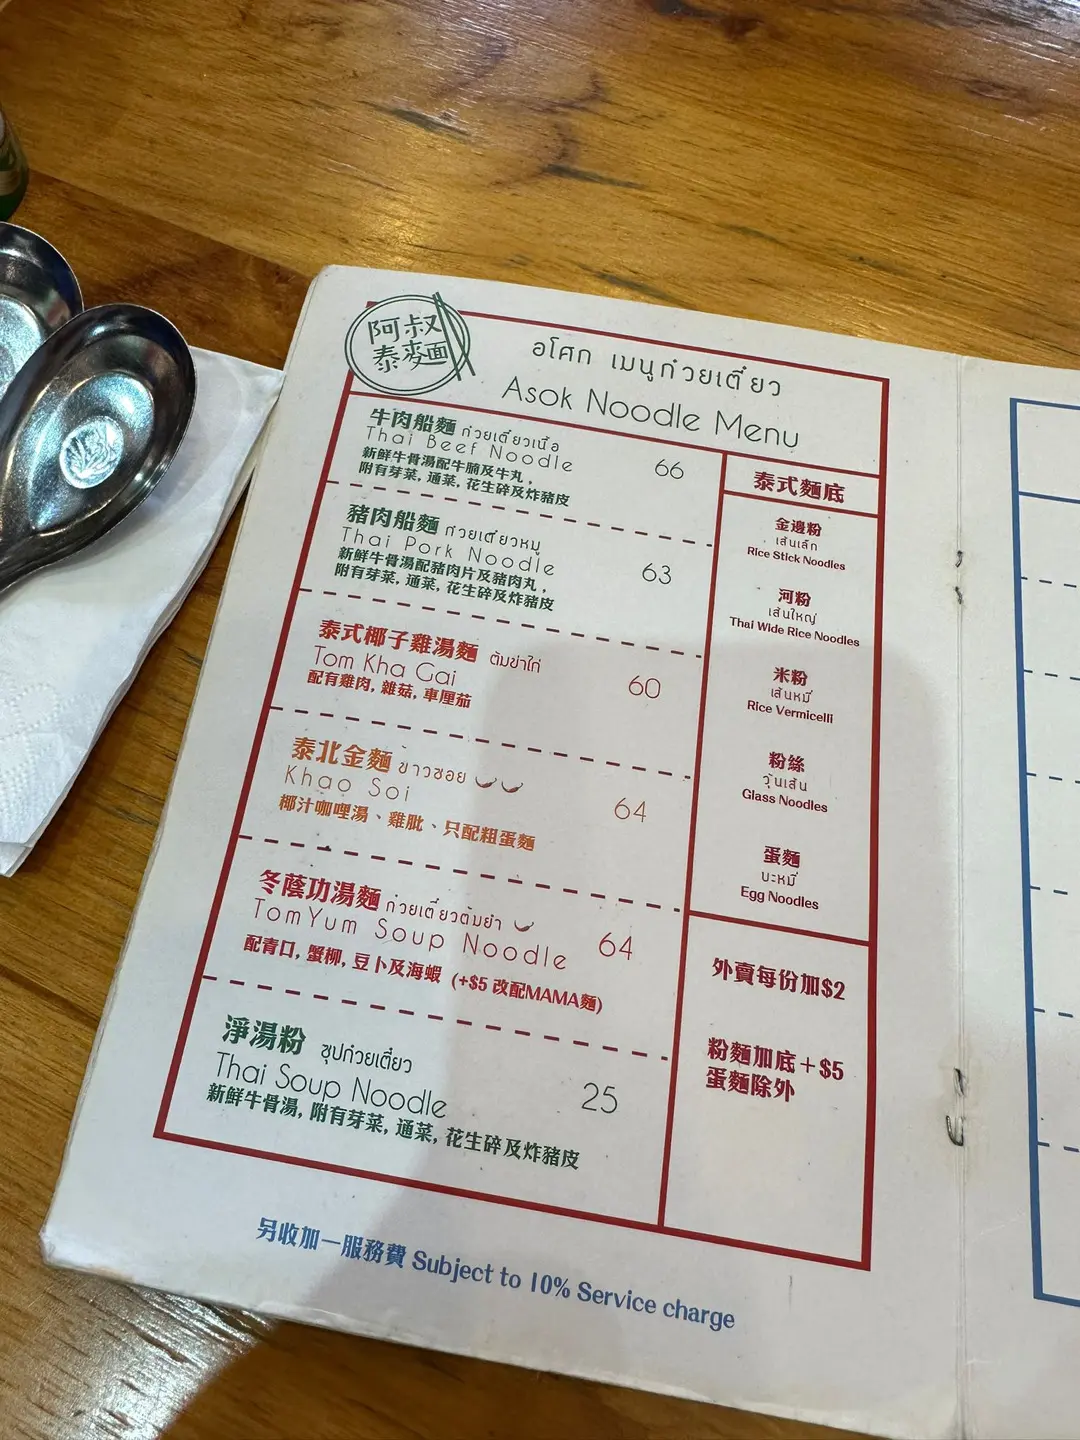 阿叔
泰麥面
อโศก เมนูก๋วยเตี๋ยว
Asok Noodle Menu
牛肉船麵 ก๋วยเตี๋ยวเนื้อ
Thai Beef Noodle
66
新鮮牛骨湯配牛腩及牛丸,
附有芽菜, 通菜, 花生碎及炸豬皮
豬肉船麵 ก๋วยเตี๋ยวหมู
Thai Pork Noodle
63
新鮮牛骨湯配豬肉片及豬肉丸,
附有芽菜, 通菜, 花生碎及炸豬皮
泰式椰子雞湯麵 ต้มข่าไก่
Tom Kha Gai
60
配有雞肉, 雜菇, 車厘茄
泰北金麵 ข้าวซอย
Khao Soi
64
椰汁咖哩湯、雞肶、只配粗蛋麵
冬蔭功湯麵 ก๋วยเตี๋ยวต้มยำ
TomYum Soup Noodle
64
配青口, 蟹柳, 豆卜及海蝦 (+$5 改配MAMA麵)
淨湯粉 ซุปก๋วยเตี๋ยว
Thai Soup Noodle
25
新鮮牛骨湯, 附有芽菜, 通菜, 花生碎及炸豬皮
泰式麵底
金邊粉
เส้นเล็ก
Rice Stick Noodles
河粉
เส้นใหญ่
Thai Wide Rice Noodles
米粉
เส้นหมี่
Rice Vermicelli
粉絲
วุ้นเส้น
Glass Noodles
蛋麵
บะหมี่
Egg Noodles
外賣每份加$2
粉麵加底＋$5
蛋麵除外
另收加一服務費 Subject to 10% Service charge